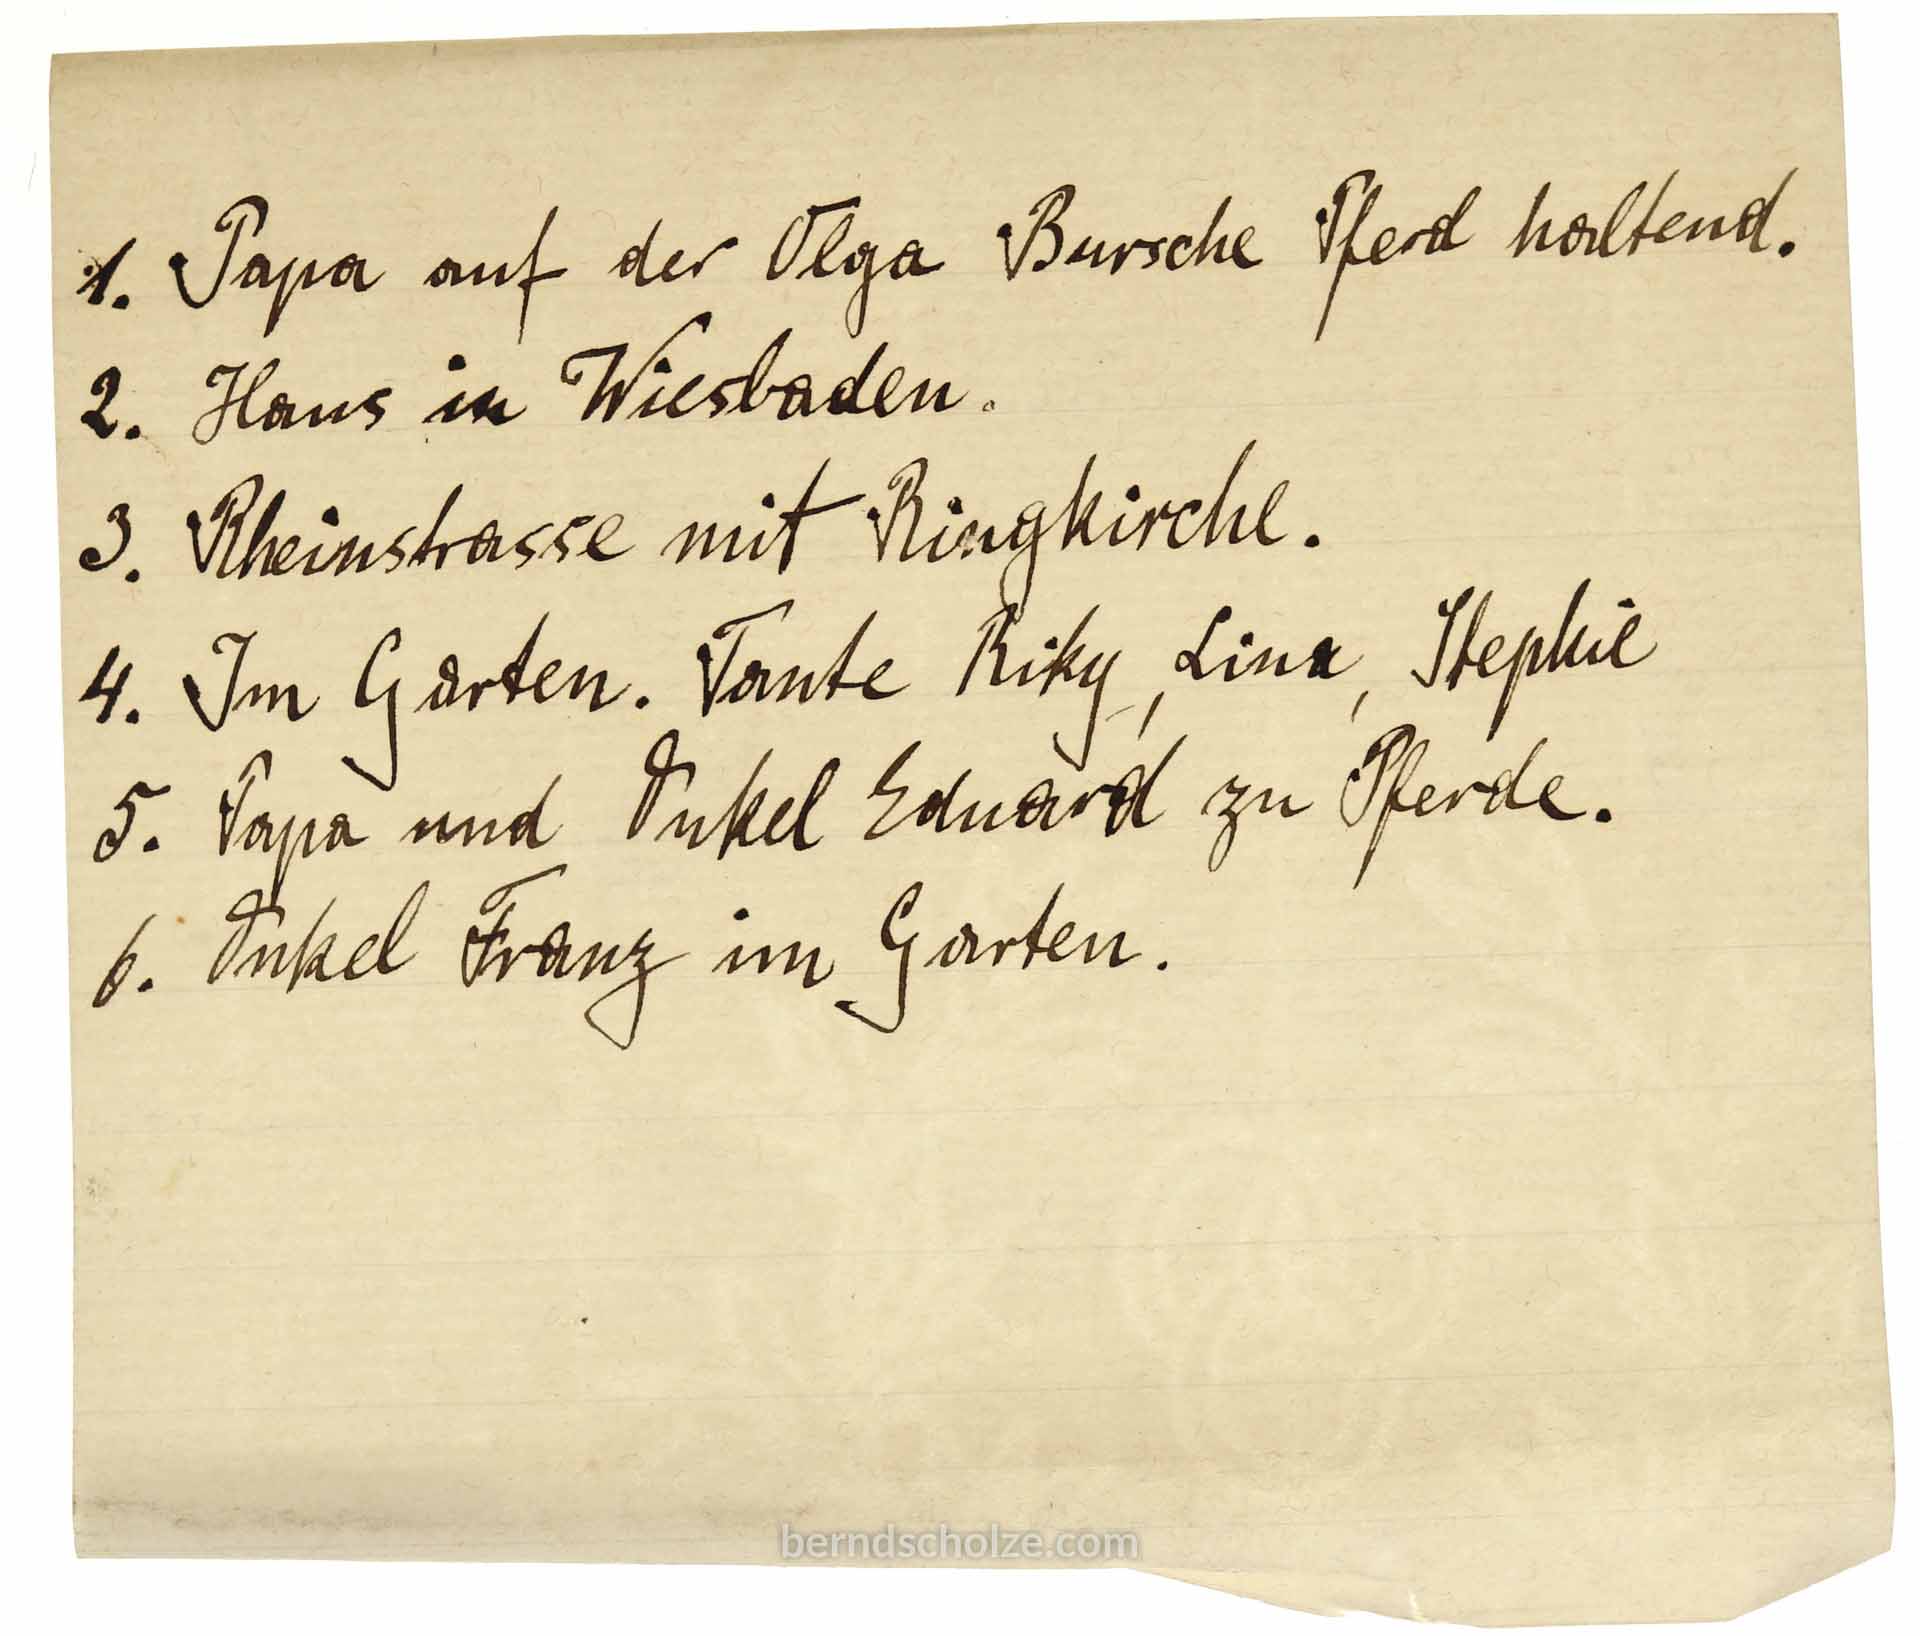 1. Papa auf der Olga Bursche Pferd haltend.
2. Haus in Wiesbaden.
3. Rheinstrasse mit Ringkirche.
4. Im Garten. Tante Riky, Lina, Stephie
5. Papa und Onkel Eduard zu Pferde.
6. Onkel Franz im Garten.
berndscholze.com